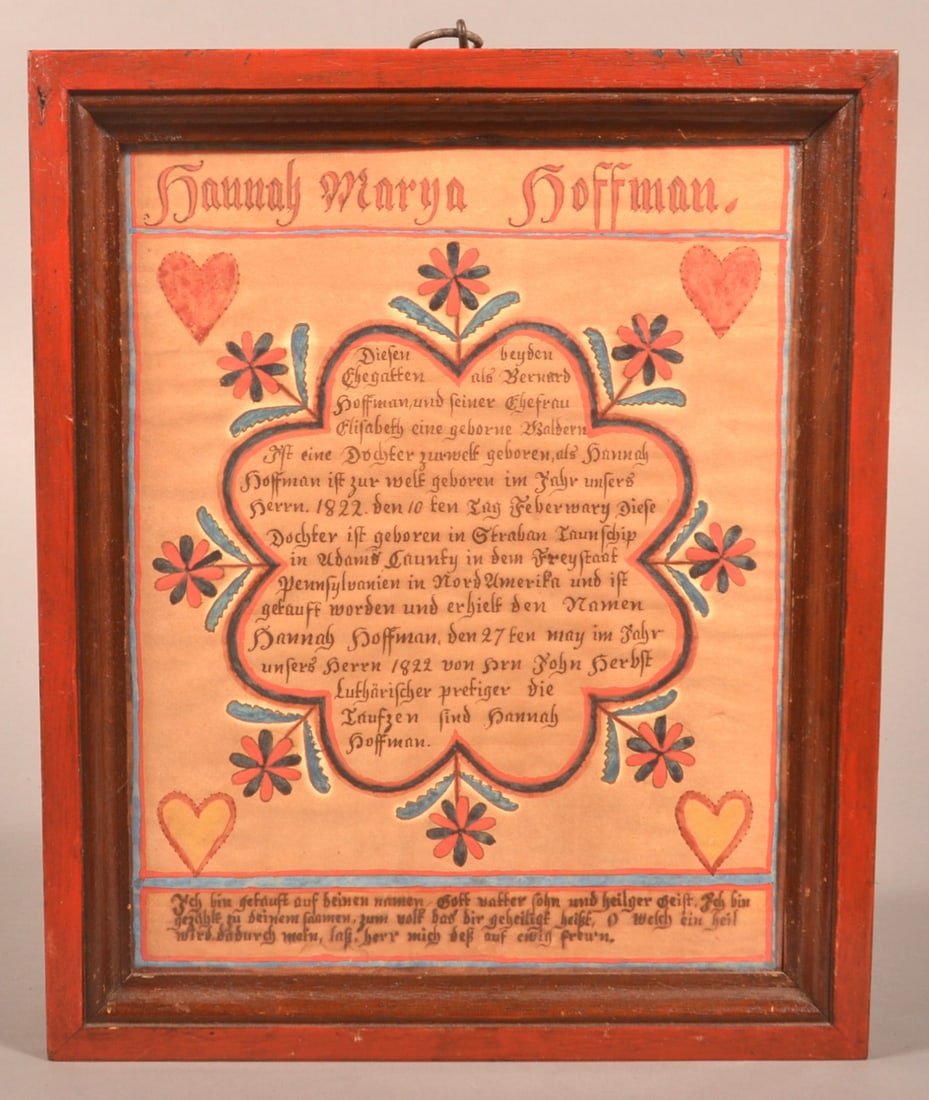 Hannah Marya Hoffman.
Diesen beyden
Ehegatten als Bernard
Hoffman, und seiner Ehefrau
Elisabeth eine geborne Waldern
Ist eine Dochter zurwelt geboren, als Hannah
Hoffman ist zur welt geboren im Jahr unsers
Herrn. 1822. den 10 ten Tag Feberwary Diese
Dochter ist geboren in Straban Taunschip
in Adams Caunty in dem Freystaat
Pennsylvanien in Nord Amerika und ist
getauft worden und erhielt den Namen
Hannah Hoffman, den 27 ten may im Jahr
unsers Herrn 1822 von Hrn John Herbst
Luthärischer pretiger die
Taufzen sind Hannah
Hoffman.
Ich bin getauft auf deinen namen Gott vatter sohn und heilger Geist. Ich bin
gezählt zu deinem saamen, zum volk das dir geheiligt heißt, O welch ein heil
wird, dadurch mein, laß, herr mich deß auf ewig freun.